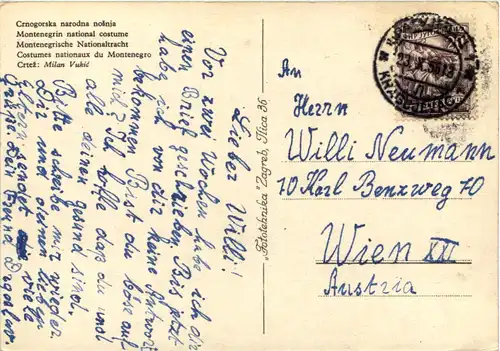 Crnogorska narodna nošnja
Montenegrin national costume
Montenegrinische Nationaltracht
Costumes nationaux du Montenegro
Crtež: Milan Vukić
Lieber Willi!
Vor zwei Wochen habe ich dir
einen Brief geschrieben. Bis jetzt
habe ich von dir keine Antwort
bekommen. Bist du böse auf
mich? Ich hoffe daß du und
alle deinen gesund sind.
Bitte schreibe mir wieder.
Dir und deinen lieben
Eltern sendet viele
Grüße Dein
"Fototehnika" Zagreb, Ilica 26
An
Herrn
Willi Neumann
10 Karl Benzweg 70
Wien XXI
Austria
20